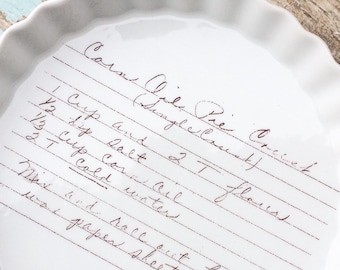 Corn Oil Pie Crust
(Single Crust)
1 Cup and 2 T flour
1/2 tsp salt
1/3 Cup Corn oil
2 T Cold water
Mix and roll out
wax paper